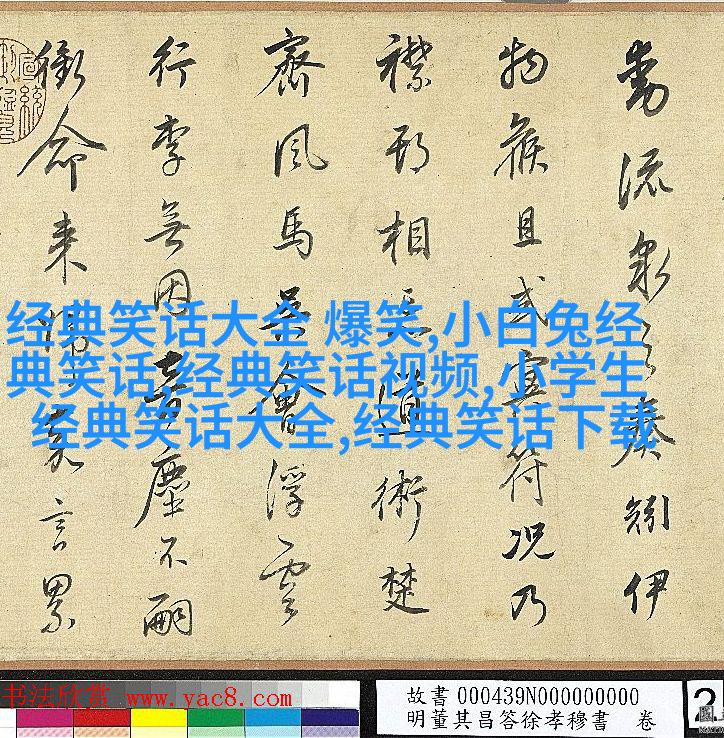 動流泉之奏矧伊
物候且或冥符況乃
襟期相道術楚
齊風馬吳會浮雲
行李無因音塵不嗣
銜命來言累
经典笑话大全 爆笑,小白兔经
典笑话,经典笑话视频,小学生
经典笑话大全,经典笑话下载
书法欣赏 www.yac8.com
故書 000439N000000000
明董其昌答徐孝穆書 卷
2